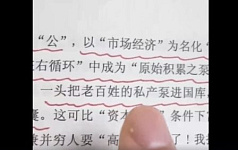 “公”，以“市场经济”为名化“
右循环”中成为“原始积累之泵
一头把老百姓的私产泵进国库，
。这可比“资本 条件下
并穷人要“高 了！我